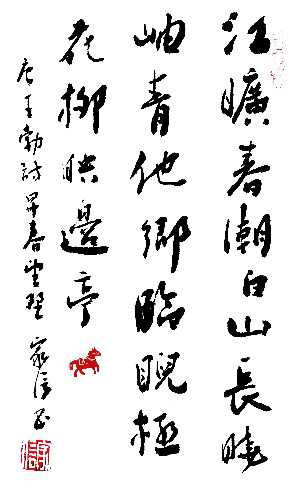 江曠春潮白山長曉
岫青他鄉臨睨極
花柳映邊亭
唐王勃詩早春望野 家信書